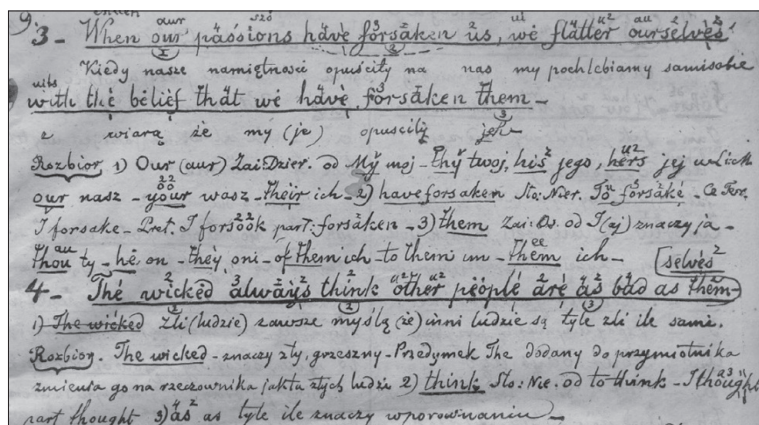 9.
3 - When our passions have forsaken us, we flatter ourselves
Kiedy nasze namiętnosci opuściły na nas my pochlebiamy samisobie
with the belief that we have forsaken them -
z wiarą że my (je) opuscily jeh
Rozbior 1) Our (aur) Zai: Dzier. od My moj - thy twoj, his jego, hers jej
our nasz - your wasz - their ich - 2) have forsaken Sło: Nier. To forsake -
I forsake - Pret. I forsook part: forsaken - 3) them Zai: Os. od I (aj) znaczy ja -
thou ty - he on - they oni - of them ich - to them im - them ich - selves
4 - The wicked always think other people are as bad as them
1) The wicked źli (ludzie) zawsze myślą (że) inni ludzie są tyle zli ile sami.
Rozbior. The wicked - znaczy zły, grzeszny - Przedymek The dodany do przymiotnika
zmienia go na rzeczownika jakta złych ludzi 2) think Sło: Nie. od to think - I thought
part thought 3) as as tyle ile znaczy wporownaniu -